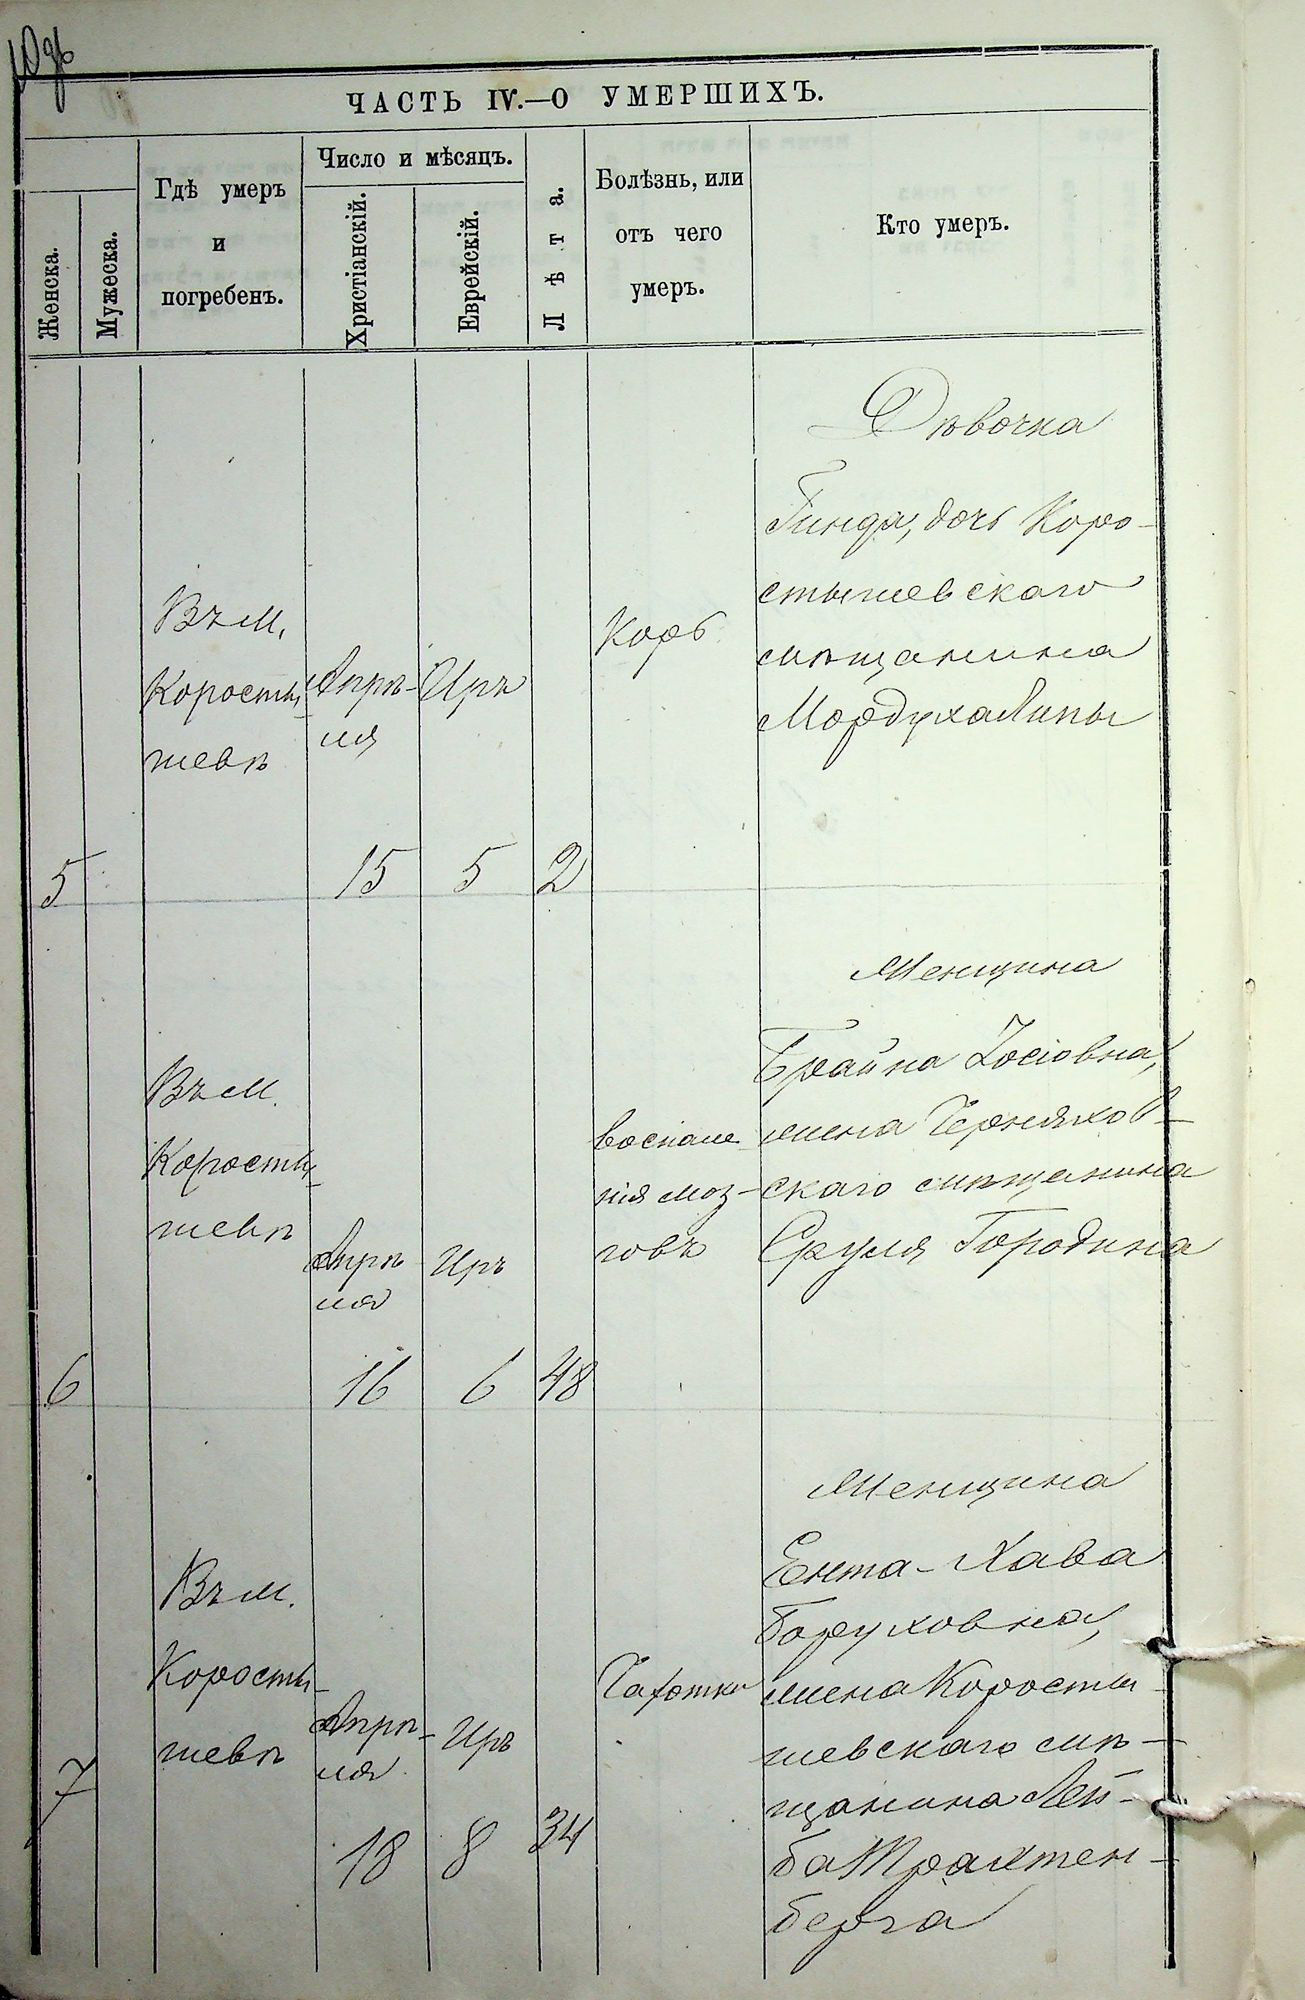 ЧАСТЬ IV.—О УМЕРШИХЪ.
Женска.
Мужеска.
Гдѣ умеръ
и
погребенъ.
Число и мѣсяцъ.
Христіанскій.
Еврейскій.
Лѣта.
Болѣзнь, или
отъ чего
умеръ.
Кто умеръ.
5
Въ м.
Коросты-
шевѣ
Апрѣ-
ля
15
Иръ
5
2
Корь
Дѣвочка
Гинда, дочь Коро-
стышевскаго
мѣщанина
Мордуха Липы
6
Въ м.
Коросты-
шевѣ
Апрѣ
ля
16
Иръ
6
48
воспале
нія моз-
говъ
Женщина
Брайна Іосіовна,
жена Черняхов-
скаго мѣщанина
Сруля Городина
7
Въ м.
Коросты-
шевѣ
Апрѣ-
ля
18
Иръ
8
34
Чахотки
Женщина
Ента-Хава
Боруховна,
жена Коросты-
шевскаго мѣ-
щанина Лей-
ба Трахтен-
берга